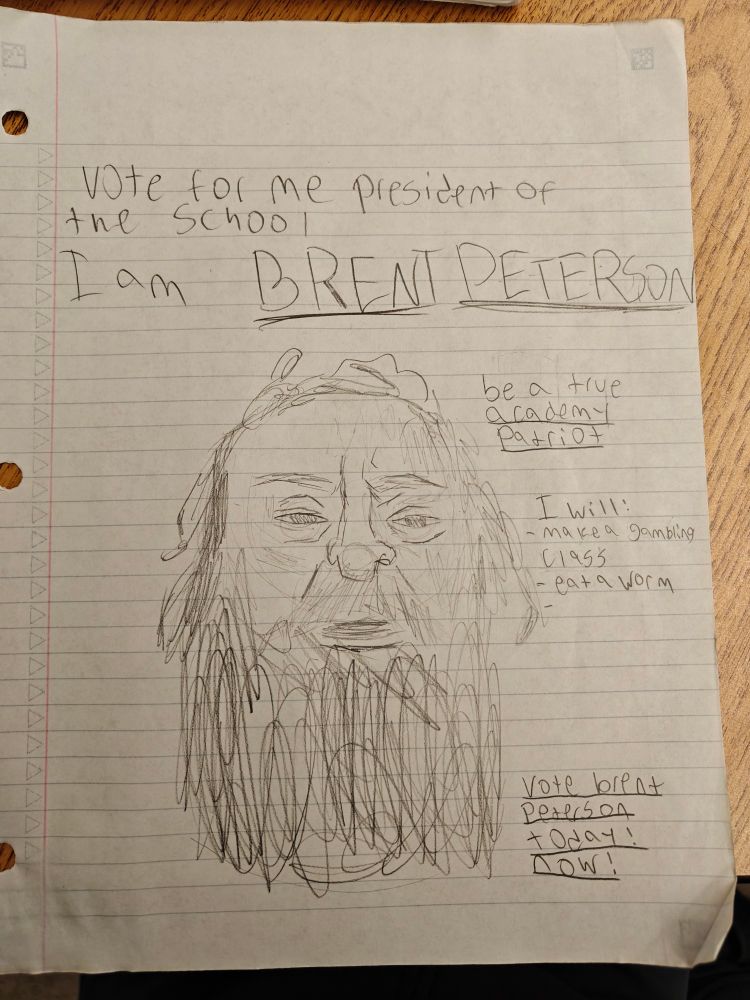 Vote for me president of
the school
I am BRENT PETERSON
be a true
academy
patriot
I will:
- make a gambling
class
- eat a worm
-
vote brent
peterson
today!
now!